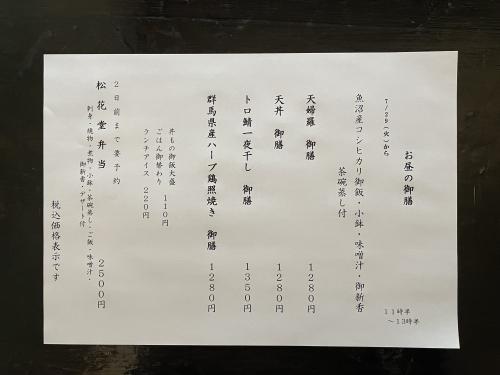 お昼の御膳
11時半
～13時半
7/29(火)から
魚沼産コシヒカリ御飯・小鉢・味噌汁・御新香
茶碗蒸し付
天婦羅 御膳 1280円
天丼 御膳 1280円
トロ鯖一夜干し 御膳 1350円
群馬県産ハーブ鶏照焼き 御膳 1280円
丼もの御飯大盛
ごはん御替わり 110円
ランチアイス 220円
2日前まで要予約
松花堂弁当 2500円
刺身・焼物・煮物・小鉢・茶碗蒸し・ご飯・味噌汁・
御新香・デザート付
税込価格表示です